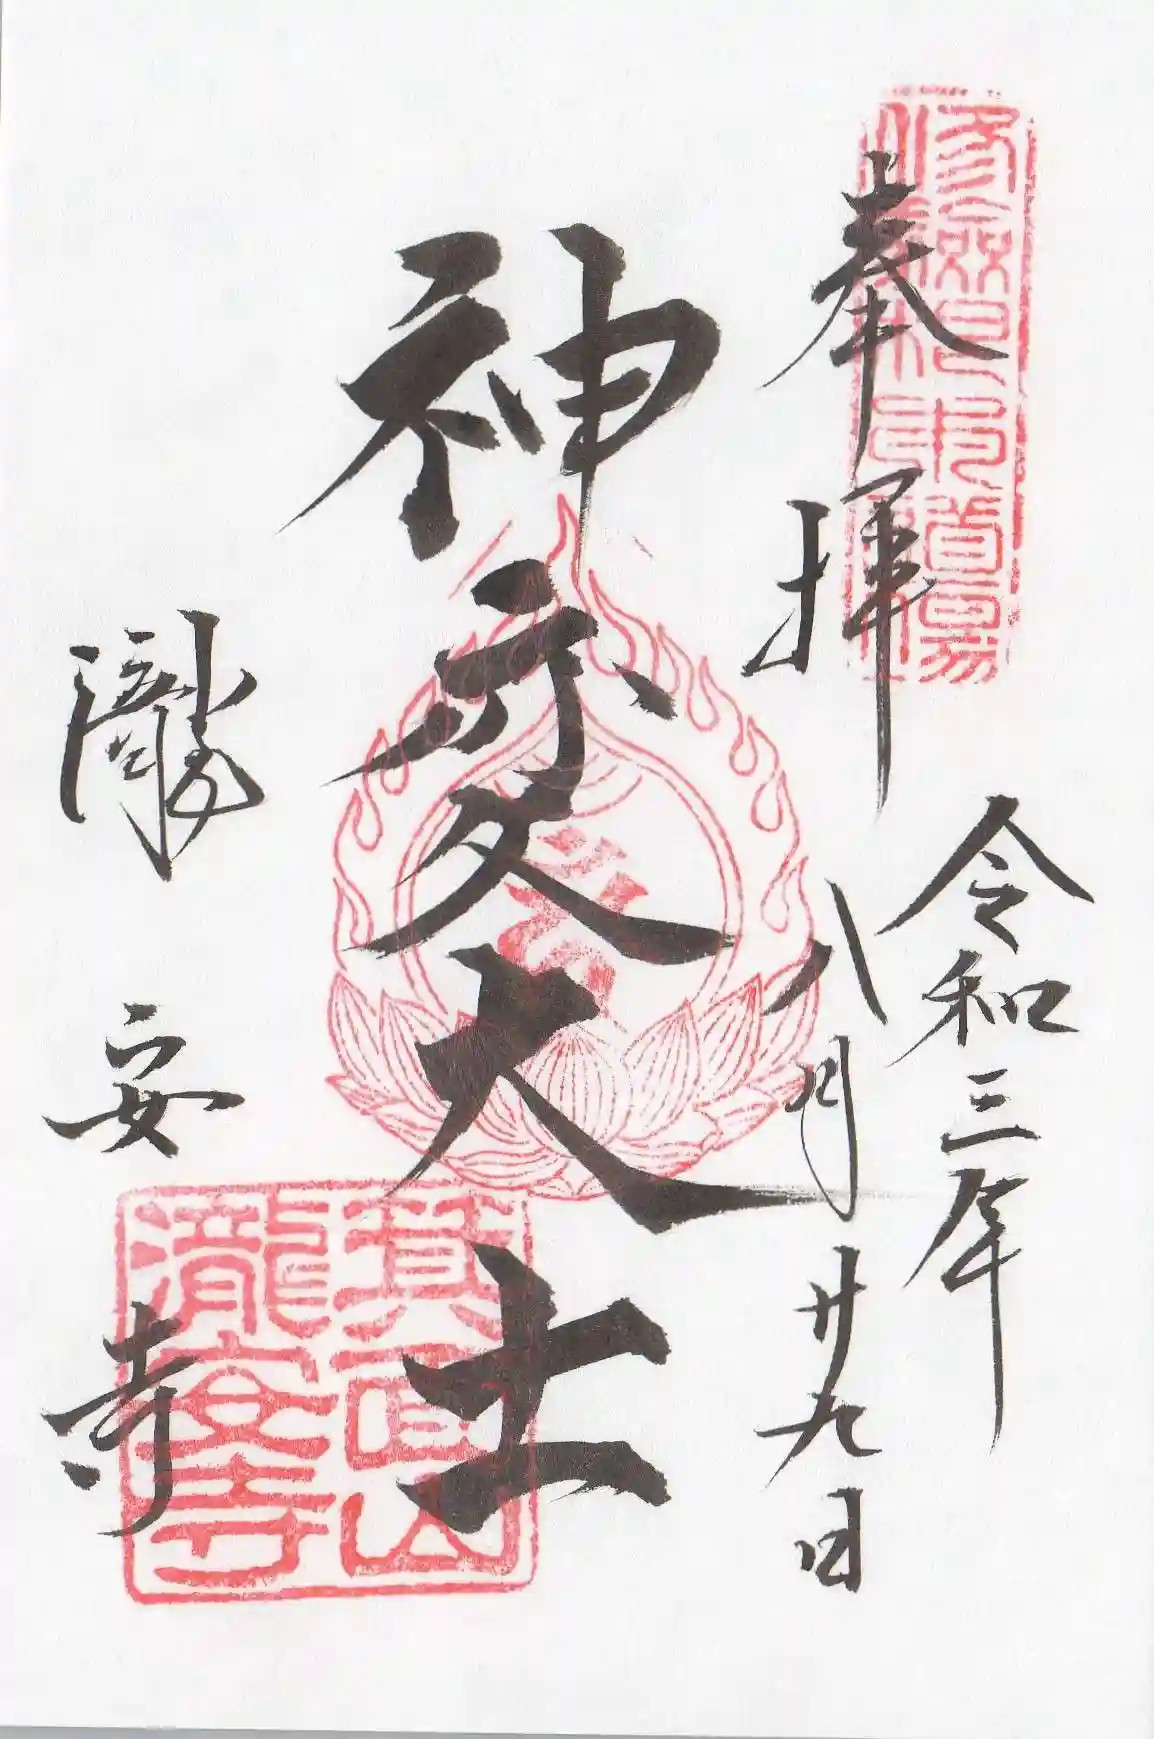 奉拝
令和三年
八月廿九日
神変大士
瀧安寺
箕面山
瀧安寺